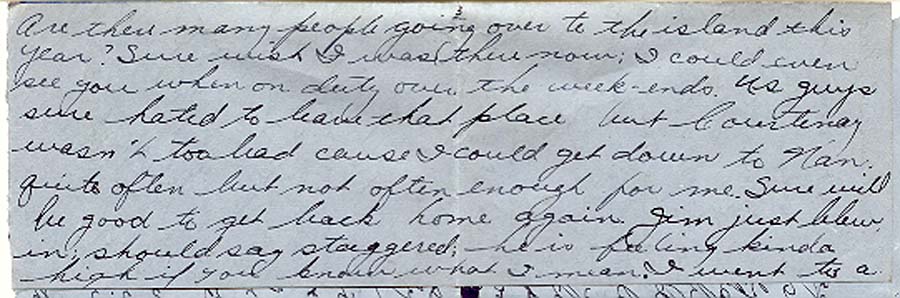 3
Are there many people going over to the island this
year? Sure wish I was there now; I could even
see you when on duty over the week-ends. Us guys
sure hated to leave that place but Courtenay
wasn't too bad cause I could get down to Nan.
quite often but not often enough for me. Sure will
be good to get back home again. Jim just blew
in, should say staggered; he is feeling kinda
high if you know what I mean. I went to a